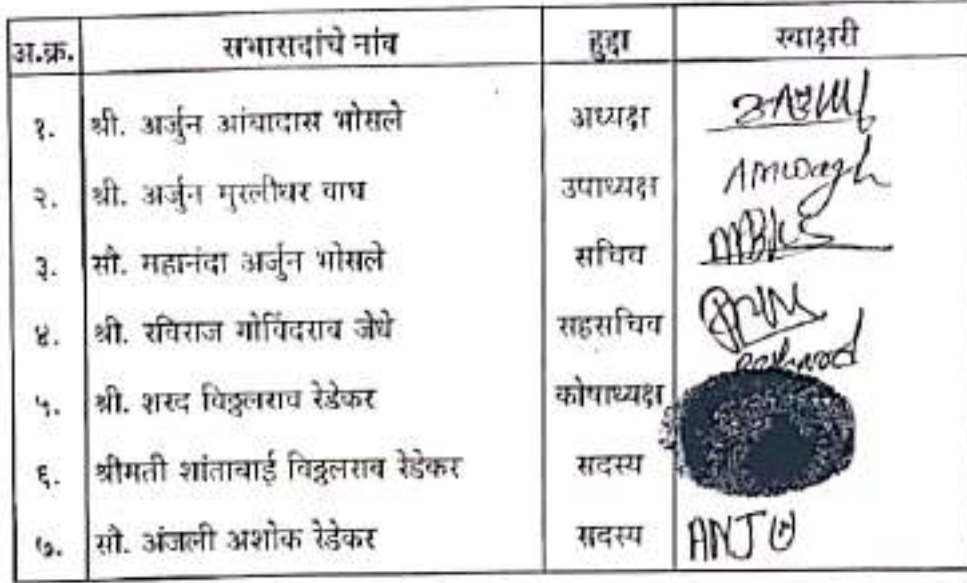 अ.क्र. सभासदांचे नांव हुद्दा स्वाक्षरी
१. श्री. अर्जुन आंबादास भोसले अध्यक्ष
२. श्री. अर्जुन मुरलीधर वाघ उपाध्यक्ष AMWagh
३. सौ. महानंदा अर्जुन भोसले सचिव
४. श्री. रविराज गोविंदराव जेधे सहसचिव
५. श्री. शरद विठ्ठलराव रेडेकर कोषाध्यक्ष
६. श्रीमती शांताबाई विठ्ठलराव रेडेकर सदस्य
७. सौ. अंजली अशोक रेडेकर सदस्य ANJU